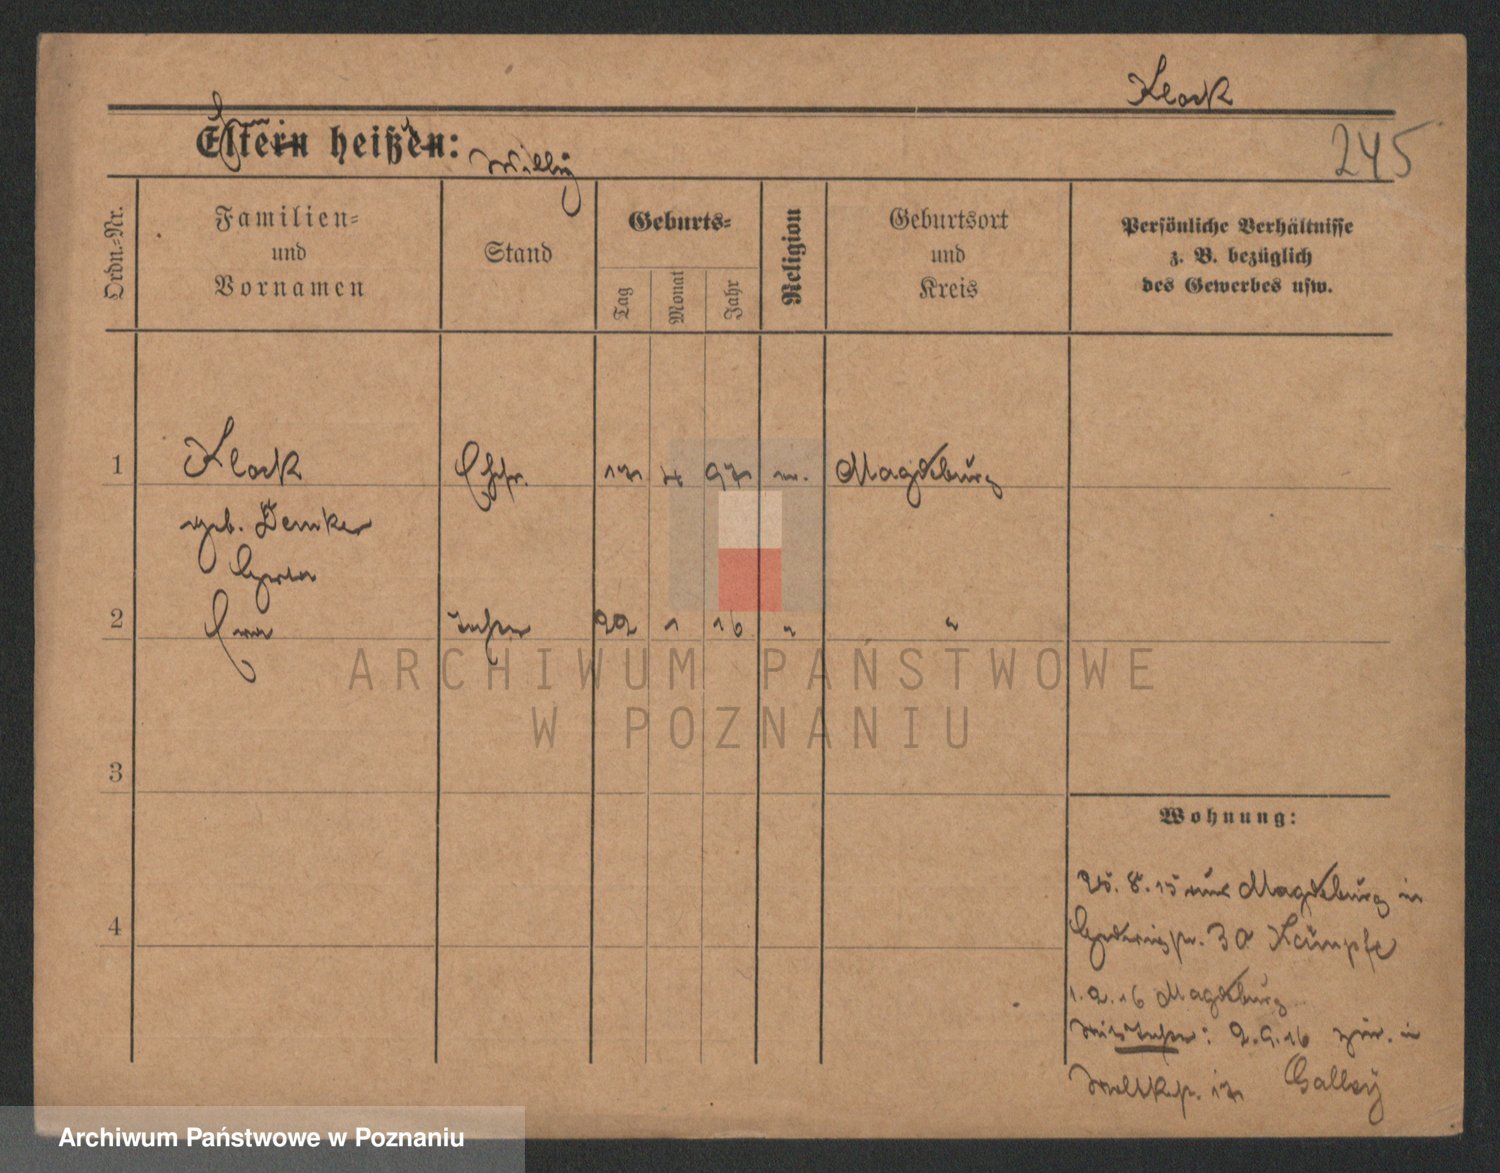 Klock
Eltern heißen:
Willy
245
Ordn.-Nr.
Familien-
und
Vornamen
Stand
Geburts-
Tag
Monat
Jahr
Religion
Geburtsort
und
Kreis
Persönliche Verhältnisse
z. B. bezüglich
des Gewerbes usw.
1 Klock Ehfr. 17 4 97 Magdeburg
geb. Demker
2 22 1 16 " "
3
4
Wohnung:
25. 8. 15 aus Magdeburg in
30 Kämpfe
1. 2. 16 Magdeburg
2. 9. 16 in
17
ARCHIWUM PAŃSTWOWE
W POZNANIU
Archiwum Państwowe w Poznaniu